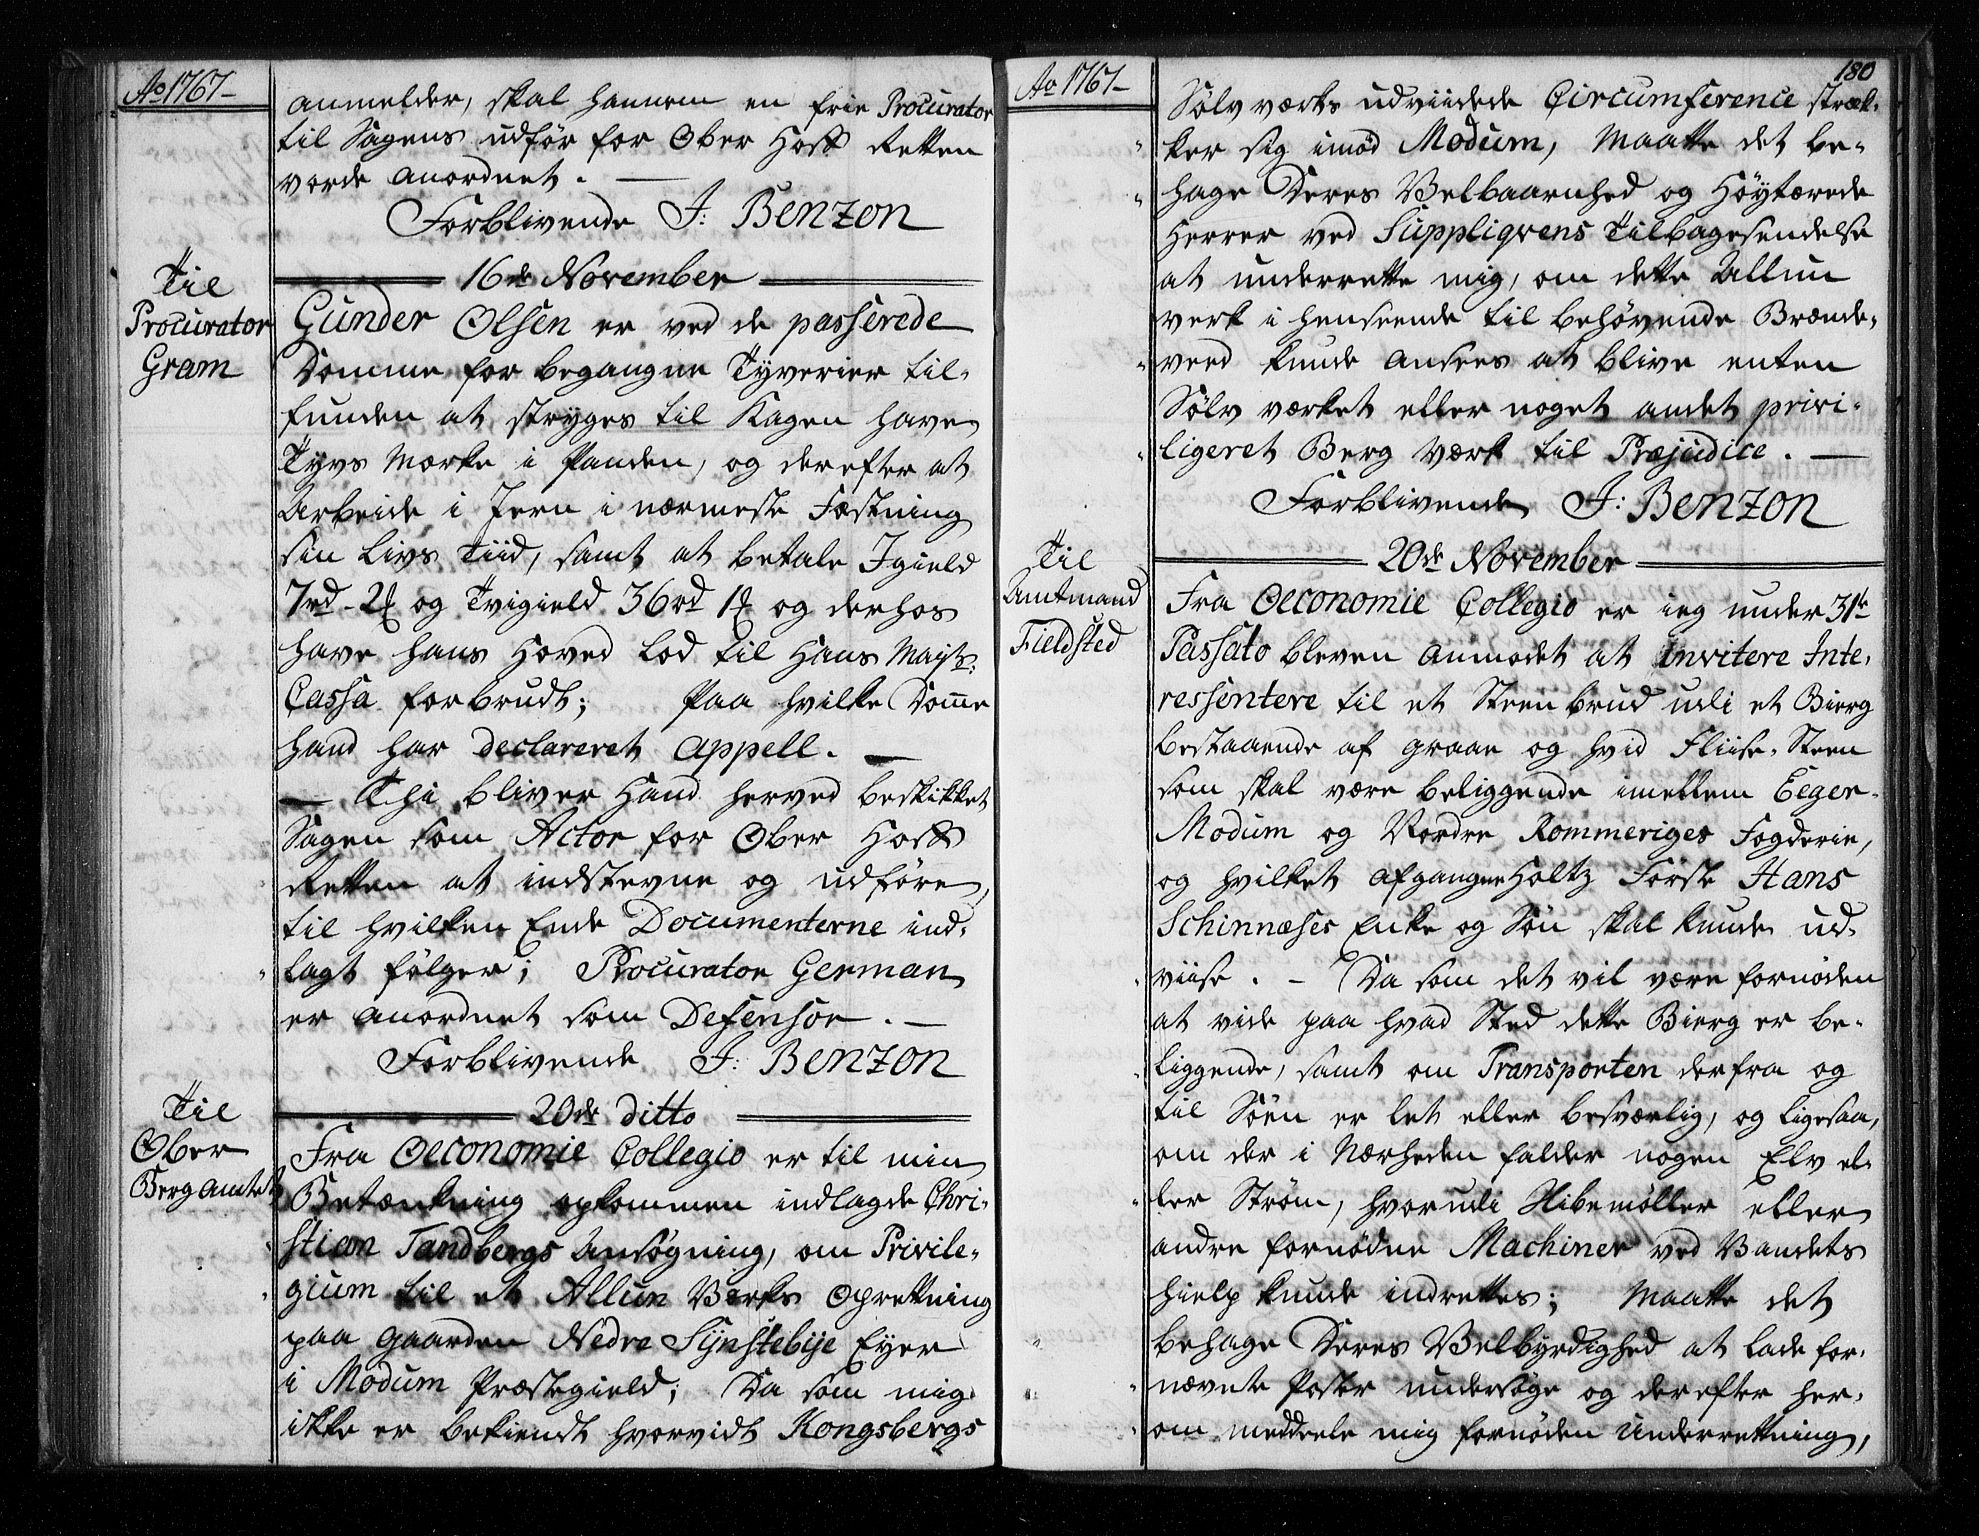 Ao 1767
anmelder, skal hannem en frie Procurator
til Sagens udför for Ober Hoff Retten
vorde anordnet.
Forblivende J: Benzon
16de November
Til
Procurator
Gram
Gunder Olsen er ved de passerede
Domme for begangne Tyverier til-
funden at stryges til Kagen have
Tyvs Mærke i Panden, og derefter at
Arbeide i Jern i nærmeste Fæstning
sin Livs Tiid, samt at betale Igield
7rd - 2ß og Tvigield 36rd 1ß og derhos
have hans Hoved Lod til Hans Mayts:
Cassa forbrudt; Paa hvilke Domme
hand har declareret Appell.
Thi bliver Hand herved beskikket
Sagen som Actor for Ober Hoff
Retten at indstevne og udföre,
til hvilken Ende Documenterne ind-
lagt fölger; Procurator German
er anordnet som Defensor.
Forblivende J: Benzon
20de ditto
Til
Ober
Berg Amtet
Fra Oeconomie Collegio er til min
Betænkning opkommen indlagde Chri-
stian Tandbergs Ansögning, om Privile-
gium til et Allun Værks Oprettning
paa Gaarden Nedre Sÿnstebÿe Eyer
i Modum Præstegield; Da som mig
ikke er bekiendt hvorvidt Kongsbergs
Ao 1767
180
Sölv værks udviidede Circumference stræk-
ker sig imod Modum, Maatte det be-
hage Deres Velbaarnhed og Höytærede
Herrer ved Suppliqvens Tilbagesendelse
at underrette mig, om dette Allun
verk i henseende til behövende Brænde-
veed kunde ansees at blive enten
Sölv værket eller noget andet privi-
ligeret Berg Værk til Præjudice.
Forblivende J: Benzon
20de November
Til
Amtmand
Fieldsted
Fra Oeconomie Collegio er ieg under 31te
Passato bleven anmodet at invitere Inte-
ressentere til et Steen brud udi et Bierg
bestaaende af graae og hvid Fliise-Steen
som skal være beliggende imellem Eeger-
Modum og Nordre Rommeriges Fogderie,
og hvilket afgangne Holtz Förste Hans
Schinnæses Enke og Sön skal kunde ud-
viise. - Da som det vil være fornöden
at vide paa hvad Sted dette Bierg er be-
liggende, samt om Transporten derfra og
til Söen er let eller besværlig, og ligesaa,
om der i Nærheden falder nogen Elv el-
ler Ström, hvorudi Slibemöller eller
andre fornödne Machiner ved Vandets
hielp kunde indrettes; Maatte det
behage Deres Velbyrdighed at lade for-
nævnte Poster undersöge og derefter her-
om meddeele mig fornöden Underrettning,